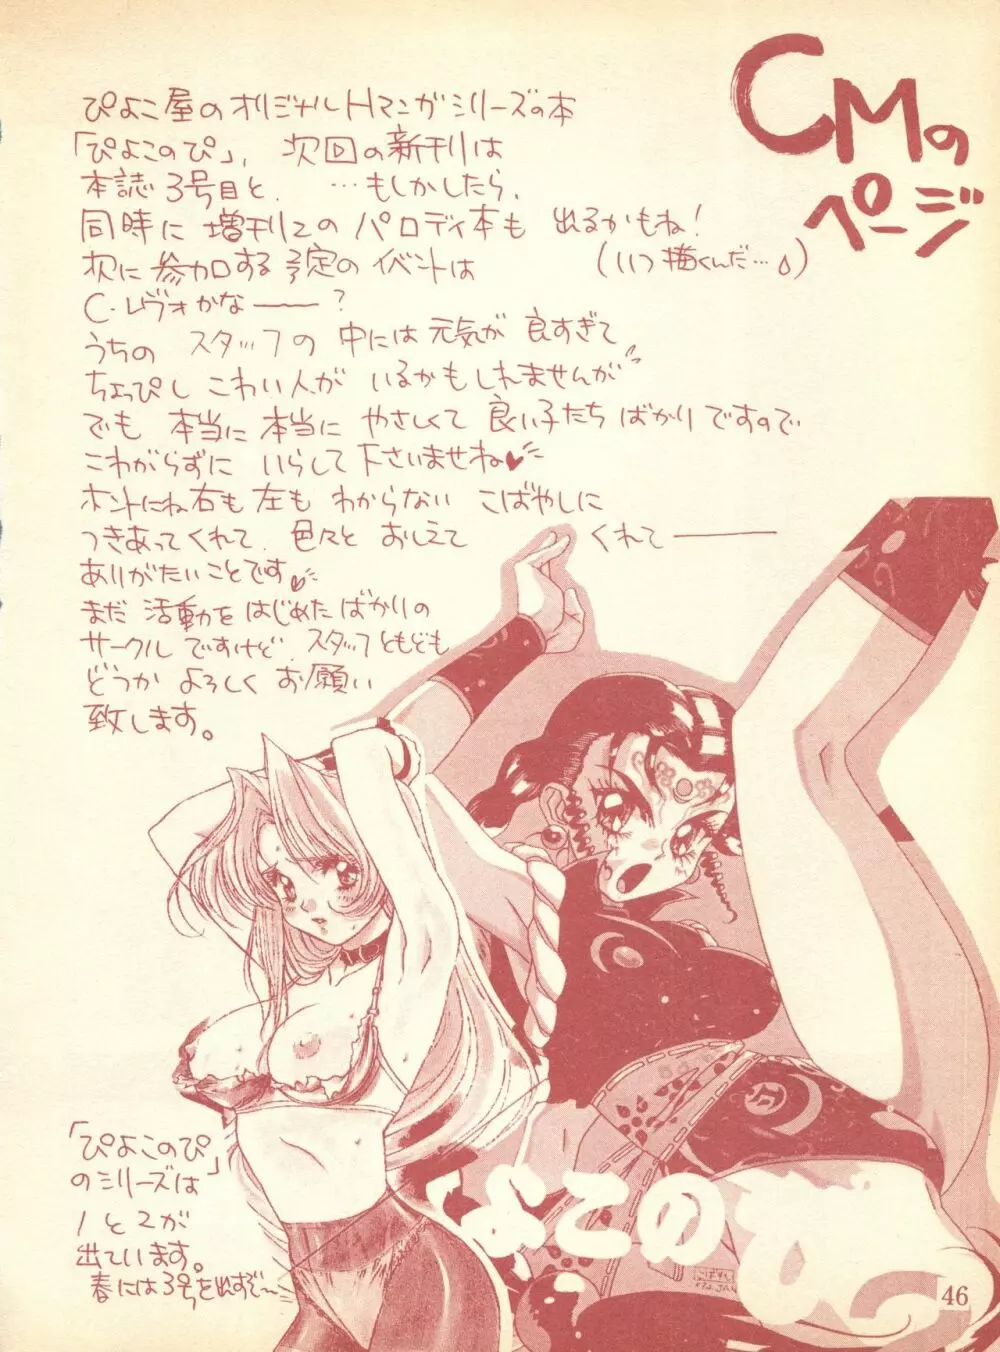 CMの
ページ
ぴよこ屋のオリジナルHマンガシリーズの本
「ぴよこのぴ」、次回の新刊は
本誌3号目と、…もしかしたら、
同時に増刊2のパロディ本も 出るかもね!
(いつ描くんだ…)
次に参加する予定のイベントは
C・レヴォかなー?
うちの スタッフの 中には元気が 良すぎて
ちょっぴし こわい人が いるかもしれませんが
でも 本当に本当に やさしくて 良い子たち ばかりですので
こわがらずに いらして下さいませね♥
ホントにね右も左も わからない こばやしに
つきあってくれて、色々と おしえて くれて——
ありがたいことです♥
まだ 活動を はじめたばかりの
サークル ですけど、スタッフともども
どうか よろしく お願い
致します。
「ぴよこのぴ」
のシリーズは
1と2が
出ています。
春には3号を出すぞ〜
よこの
46